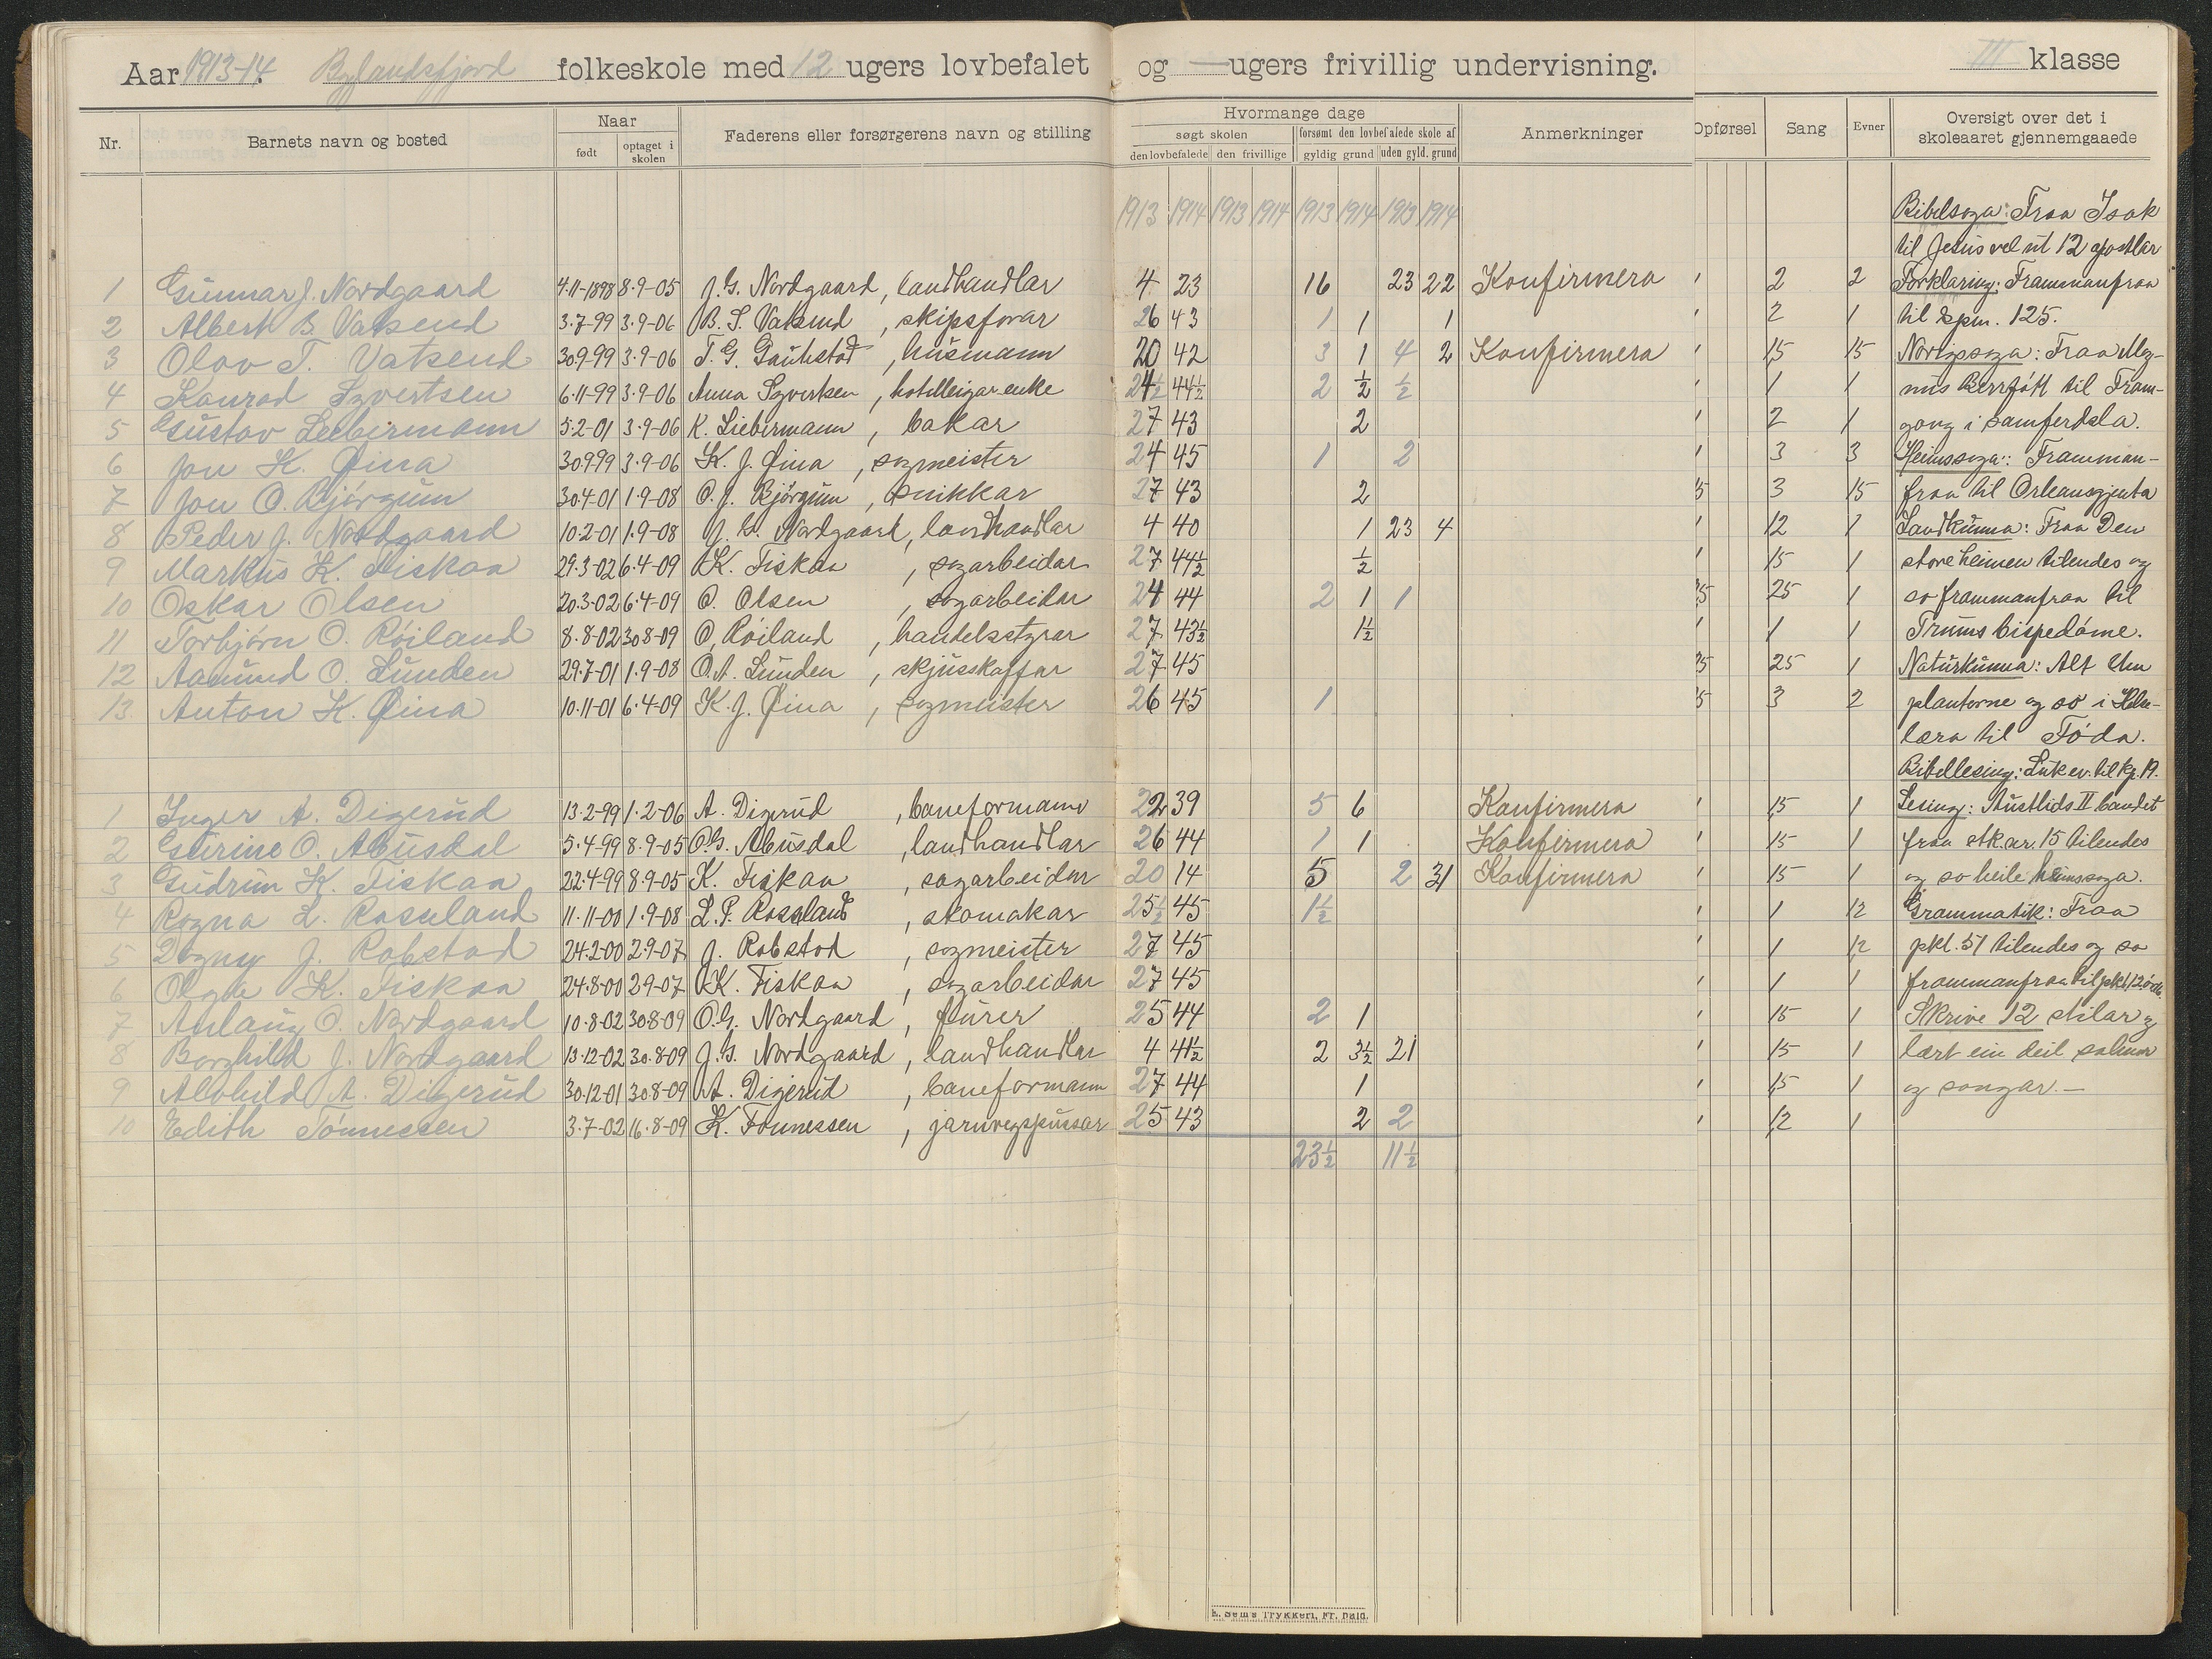 Aar 1913-14. Byglandsfjord folkeskole med 12 ugers lovbefalet og — ugers frivillig undervisning. III klasse
Nr. Barnets navn og bosted Naar født optaget i skolen Faderens eller forsørgerens navn og stilling Hvormange dage søgt skolen den lovbefalede den frivillige forsømt den lovbefalede skole af gyldig grund uden gyld. grund Anmerkninger Opførsel Sang Evner Oversigt over det i skoleaaret gjennemgaaede
1913 1914 1913 1914 1913 1914 1913 1914 Bibelsoga: Fraa Isak
til Jesus vel ut 12 apostlar
1 Gunnar J. Nordgaard 4-11-1898 8-9-05 J. G. Nordgaard, landhandlar 4 23 16 23 22 Konfirmera 2 2 Forklaring: Frammanfraa
2 Albert B. Vatsend 3-7-99 3-9-06 B. S. Vatsend, skipsforar 26 43 1 1 1 2 1 til spm. 125.
3 Olav T. Vatsend 30-9-99 3-9-06 T. G. Gauhstad, husmann 20 42 3 1 4 2 Konfirmera 1,5 15 Norigssoga: Fraa Mag-
4 Konrad Syvertsen 6-11-99 3-9-06 Anna Syvertsen, hotelleigar enke 24½ 44½ 2 ½ ½ 1 1 nus Berrføtt til Fram-
5 Gustav Liebermann 5-2-01 3-9-06 K. Liebermann, bakar 27 43 2 2 1 gong i samferdsla.
6 Jon K. Øina 30-9-99 3-9-06 K. J. Øina, sagmeister 24 45 1 2 3 3 Heimssoga: Framman-
7 Jon O. Bjørgum 30-4-01 1-9-08 O. J. Bjørgum, snikkar 27 43 2 3 15 fraa til Orleansgjenta
8 Peder J. Nordgaard 10-2-01 1-9-08 J. G. Nordgaard, landhandlar 4 40 1 23 4 12 1 Landkunna: Fraa Den
9 Markus K. Fiskaa 29-3-02 6-4-09 K. Fiskaa, sagarbeidar 27 44½ ½ 15 1 store heimen tilendes og
10 Oskar Olsen 20-3-02 6-4-09 O. Olsen, sagarbeidar 24 44 2 1 1 25 1 so frammanfraa til
11 Torbjørn O. Røiland 8-8-02 30-8-09 O. Røiland, handelsstyrar 27 43½ 1½ 1 1 Trums bispedøme.
12 Aamund O. Lunden 29-7-01 1-9-08 O. A. Lunden, skjusskaffar 27 45 25 1 Naturkunna: Alt um
13. Anton K. Øina 10-11-01 6-4-09 K. J. Øina, sagmeister 26 45 1 3 2 plantorne og so i Hels-
læra til Føda.
Bibellesing: Luk ev. til kp. 19.
1 Inger A. Digerud 13-2-99 1-2-06 A. Digerud, baneformann 22 39 5 6 Konfirmera 1,5 1 Lesing: Austlids II bandet
2 Gurine O. Abusdal 5-4-99 8-9-05 O. G. Abusdal, landhandlar 26 44 1 1 Konfirmera 15 1 fraa stk. nr. 15 tilendes
3 Gudrun K. Fiskaa 22-4-99 8-9-05 K. Fiskaa, sagarbeidar 20 14 5 2 31 Konfirmera 15 1 og so heile heimssoga.
4 Ragna L. Rosseland 11-11-00 1-9-08 L. P. Rosseland, skomakar 25½ 45 1½ 1 12 Grammatik: Fraa
5 Dagny J. Robstad 24-2-00 2-9-07 J. Robstad, sagmeister 27 45 1 12 pkt. 51 tilendes og so
6 Olga K. Fiskaa 24-8-00 2-9-07 K. Fiskaa, sagarbeidar 27 45 1 1 frammanfraa til pkt. 12
7 Anlaug O. Nordgaard 10-8-02 30-8-09 O. G. Nordgaard, furer 25 44 2 1 15 1 Skrive 12 stilar og
8 Borghild J. Nordgaard 13-12-02 30-8-09 J. G. Nordgaard, landhandlar 4 41½ 2 3½ 21 15 1 lært ein deil salmar
9 Alvhild A. Digerud 30-12-01 30-8-09 A. Digerud, baneformann 27 44 1 1,5 1 og songar. —
10 Edith Tønnessen 3-7-02 16-8-09 K. Tønnessen, jarnvegspussar 25 43 2 2 12 1
23½ 11½
E. Sems Trykkeri, Fr.hald.